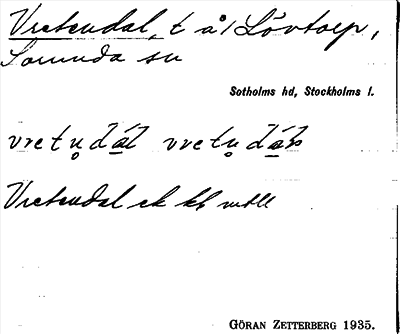 Vretendal, t å/Lövtorp,
Sorunda sn
Sotholms hd, Stockholms l.
vretu̥dál vretu̥dáls
Vretendal ek kb
GÖRAN ZETTERBERG 1935.